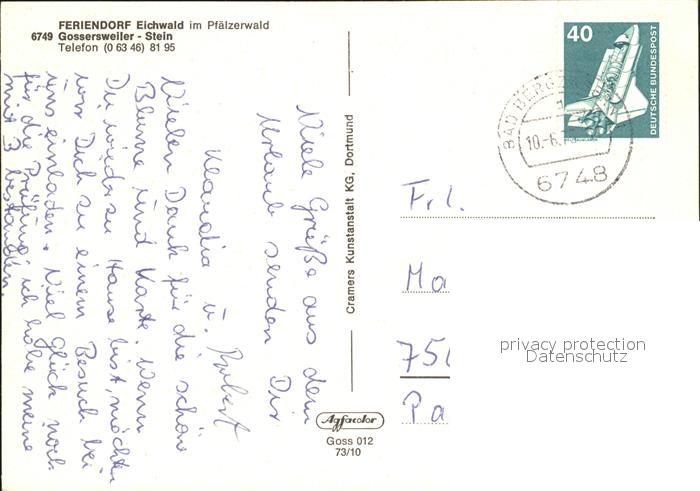 FERIENDORF Eichwald im Pfälzerwald
6749 Gossersweiler - Stein
Telefon (0 63 46) 81 95
Viele Grüße aus dem
Urlaub senden Dir
Klaudia u. Robert
Vielen Dank für die schöne
Blume und Karte. Wenn
Du wieder zu Hause bist, möchten
wir Dich zu einem Besuch bei
uns einladen. Viel Glück noch
für die Prüfung, ich habe meine
mit 3 bestanden.
Cramers Kunstanstalt KG, Dortmund
Agfacolor
Goss 012
73/10
40
DEUTSCHE BUNDESPOST
BAD BERG
1
10.-6.
6748
Frl.
Ma
750
Pa
privacy protection
Datenschutz